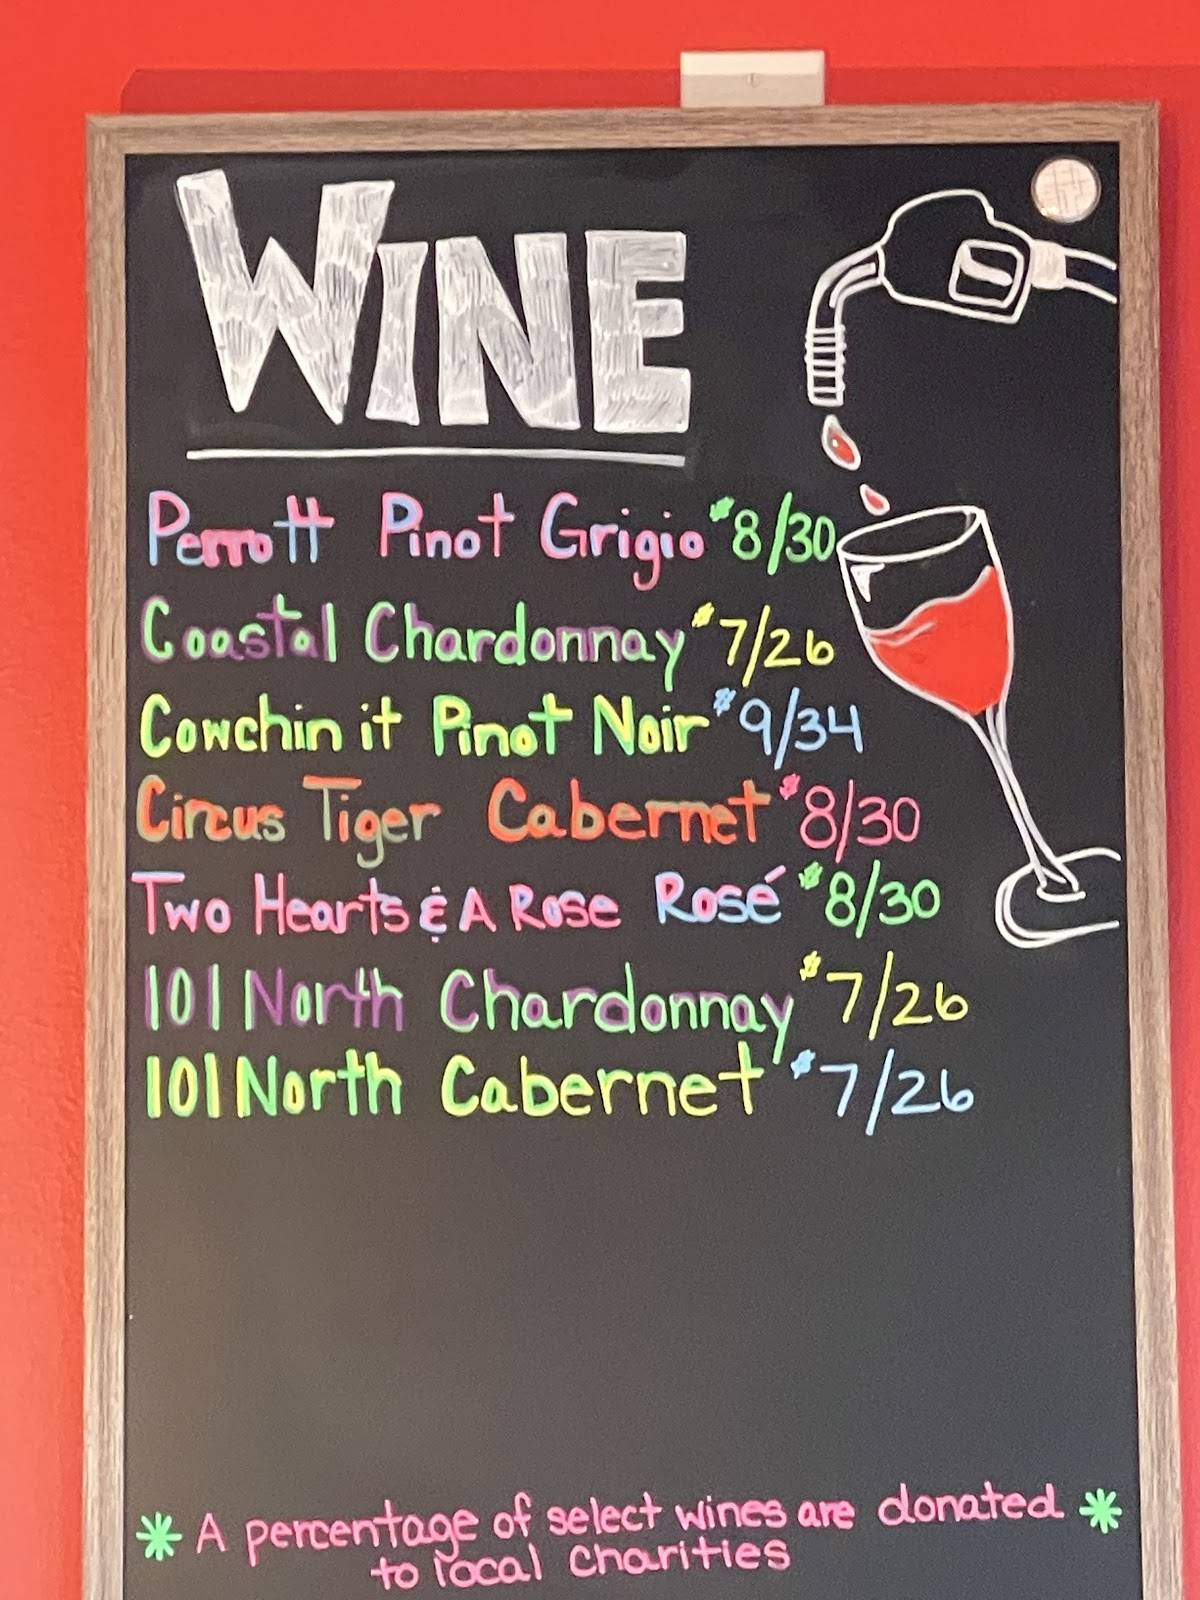 WINE
Perrott Pinot Grigio $8/30
Coastal Chardonnay $7/26
Cowchin it Pinot Noir $9/34
Circus Tiger Cabernet $8/30
Two Hearts & A Rose Rosé $8/30
101 North Chardonnay $7/26
101 North Cabernet $7/26
* A percentage of select wines are donated *
to local charities